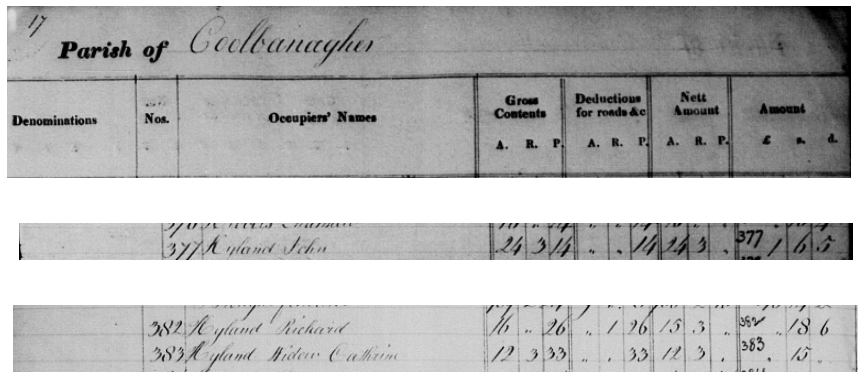 17
Parish of Coolbanagher
Denominations Nos. Occupiers' Names Gross Contents A. R. P. Deductions for roads &c A. R. P. Nett Amount A. R. P. Amount £ s. d.
377 Hyland John 24 3 14 " " 14 24 3 " 377 1 6 5
382 Hyland Richard 16 " 26 " 1 26 15 3 " 382 " 18 6
383 Hyland Widow Cathrin 12 3 33 " " 33 12 3 " 383 " 15 "